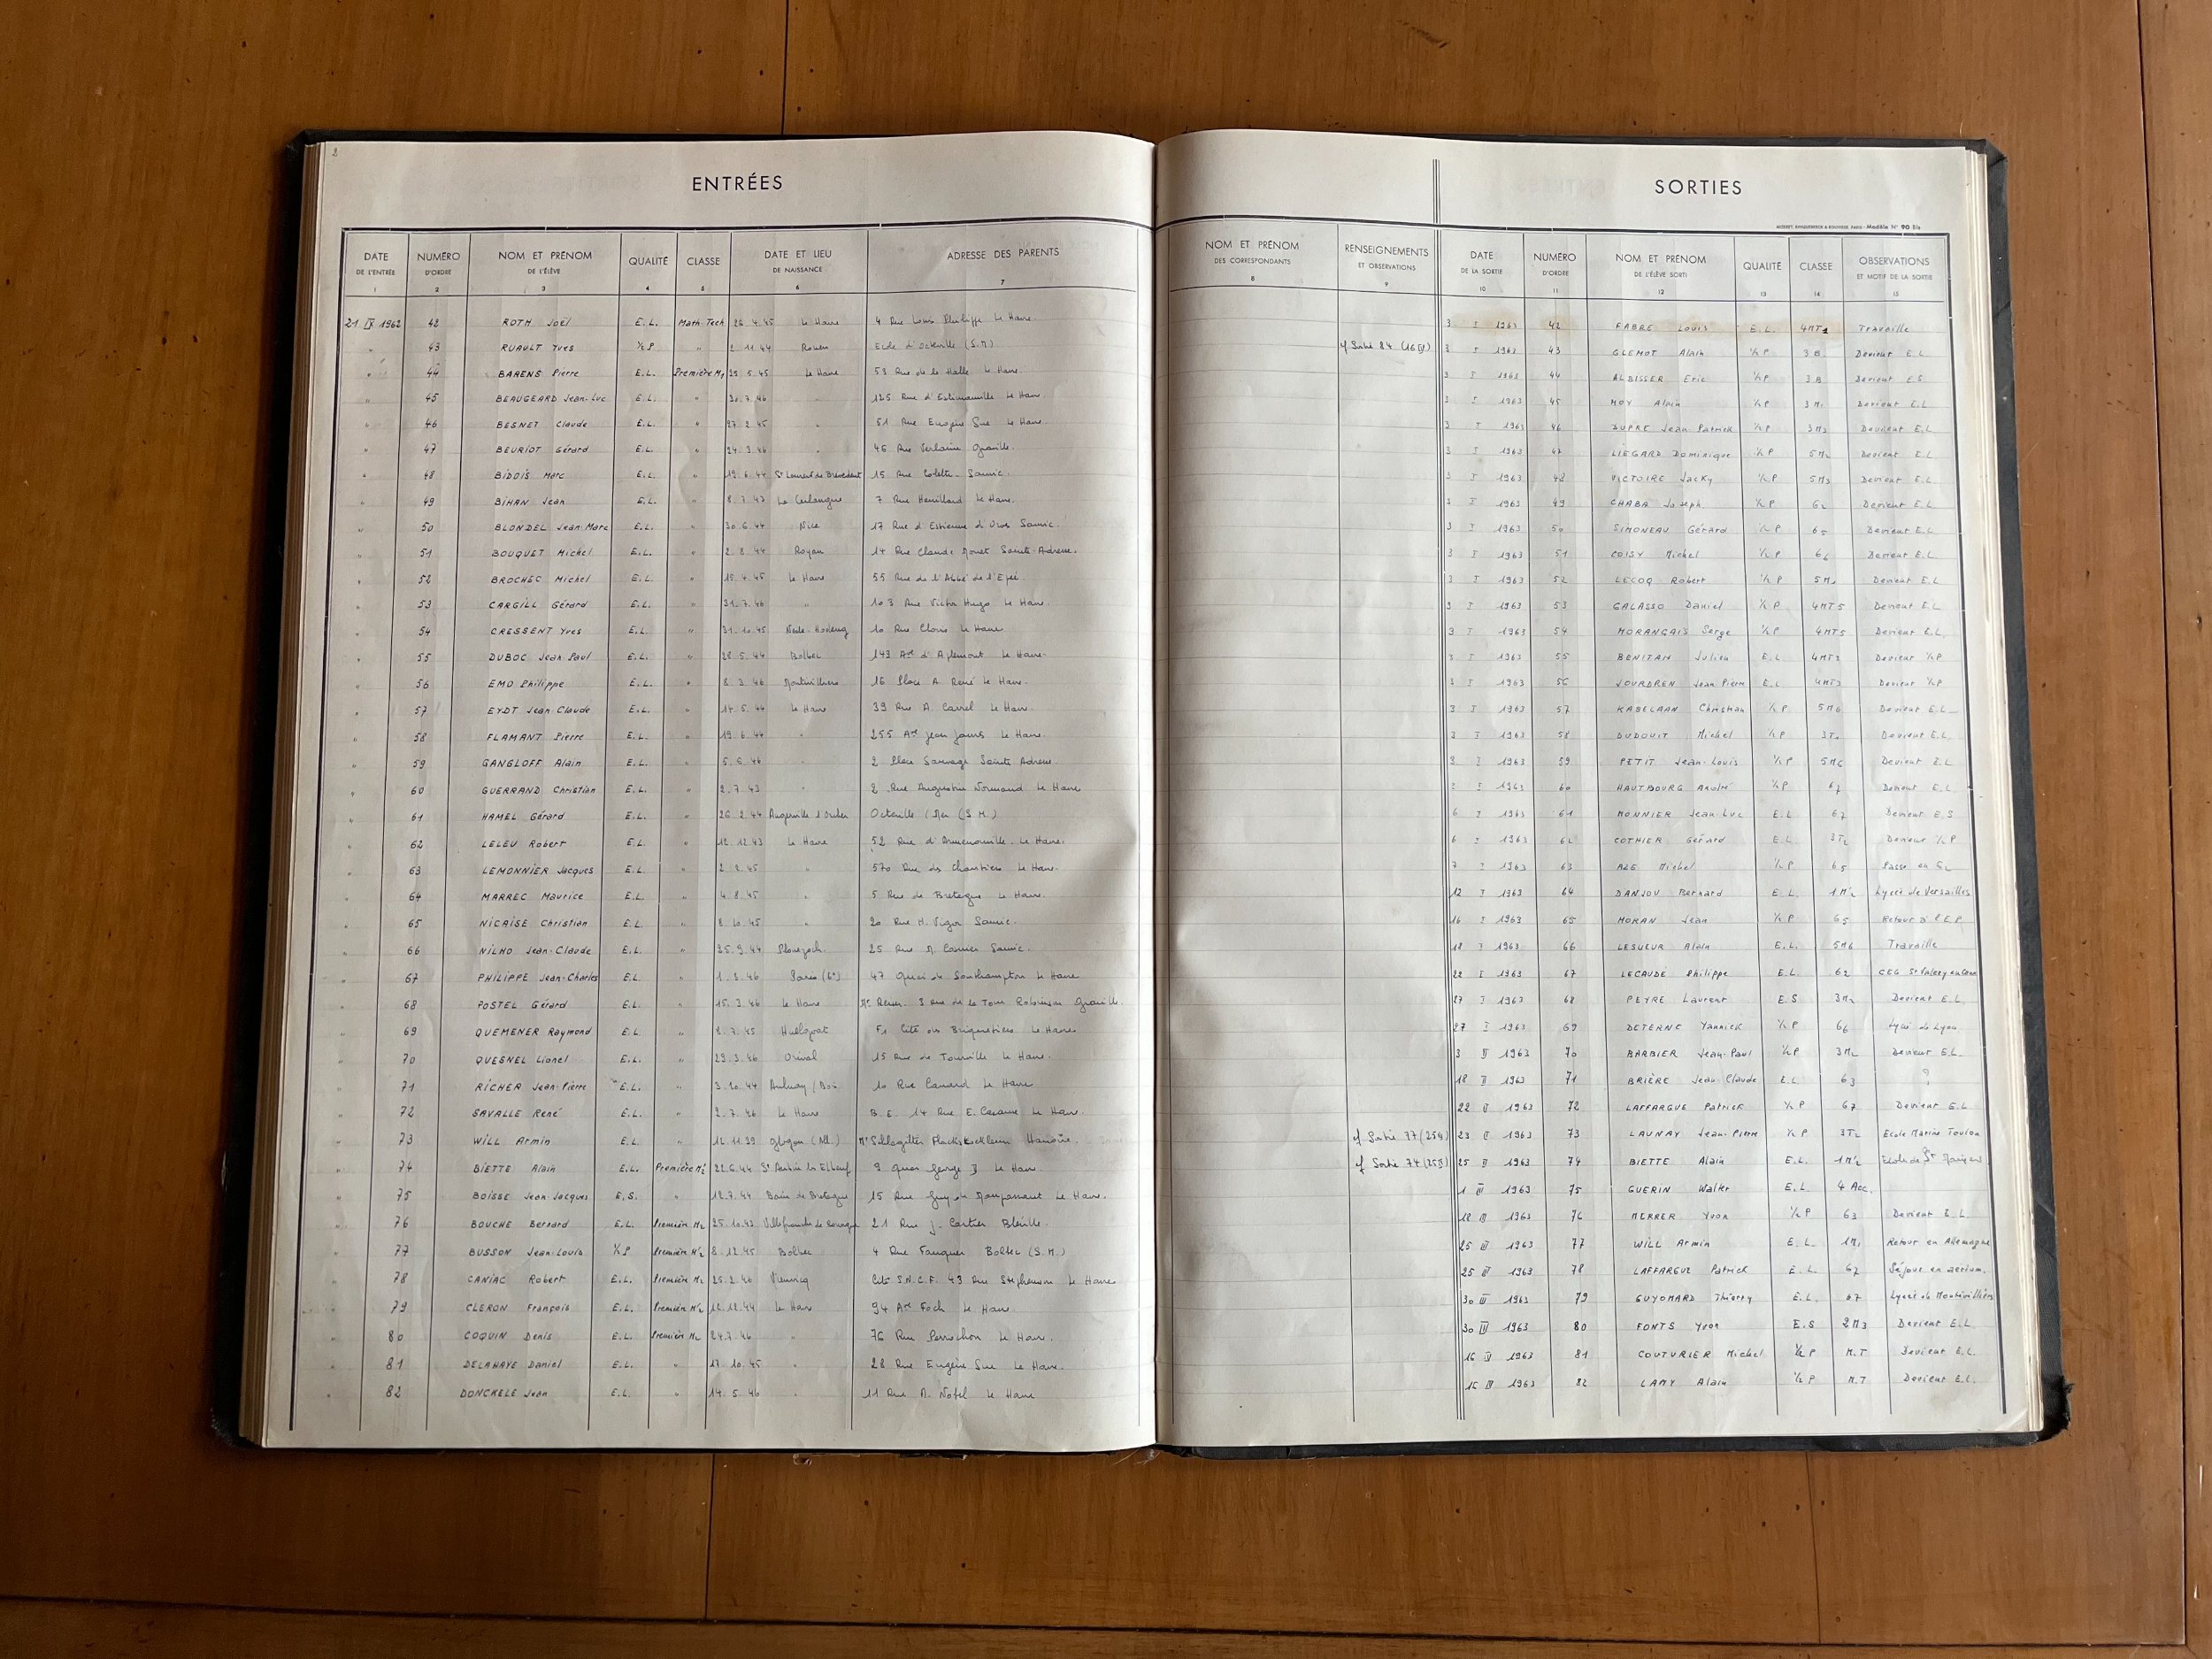 2
ENTRÉES
DATE DE L'ENTRÉE 1 NUMÉRO D'ORDRE 2 NOM ET PRÉNOM DE L'ÉLÈVE 3 QUALITÉ 4 CLASSE 5 DATE ET LIEU DE NAISSANCE 6 ADRESSE DES PARENTS 7
21 IX 1962 42 ROTH Joël E.L. Math.Tech 26.4.45 Le Havre 4 Rue Louis Philippe Le Havre
" 43 RUAULT Yves ½ P " 2.11.44 Rouen Ecole d'Octeville (S.M.)
" 44 BARENS Pierre E.L. Première M1 29.5.45 Le Havre 53 Rue de la Halle Le Havre
" 45 BEAUGEARD Jean-Luc E.L. " 30.7.46 " 125 Rue d' Le Havre
" 46 BESNET Claude E.L. " 27.2.45 " 51 Rue Eugène Sue Le Havre
" 47 BEURIOT Gérard E.L. " 24.3.46 " 46 Rue Verlaine Graville
" 48 BIDOIS Marc E.L. " 19.6.44 St Laurent de Brèvedent 15 Rue Colette Sanvic
" 49 BIHAN Jean E.L. " La Cerlangue 7 Rue Le Havre
" 50 BLONDEL Jean-Marc E.L. " 30.6.44 Nice 17 Rue d'Estienne d'Orves Sanvic
" 51 BOUQUET Michel E.L. " 2.8.44 Royan 14 Rue Claude Monet Sainte-Adresse
" 52 BROCHEC Michel E.L. " 15.4.45 Le Havre 55 Rue de l'Abbé de l'Epée
" 53 CARGILL Gérard E.L. " 31.7.46 " 103 Rue Victor Hugo Le Havre
" 54 CRESSENT Yves E.L. " 31.10.45 10 Rue Clovis Le Havre
" 55 DUBOC Jean Paul E.L. " 28.5.44 Bolbec 143 Ave d'Aplemont Le Havre
" 56 EMO Philippe E.L. " 8.3.46 Montivilliers 16 Place A. René Le Havre
" 57 EYDT Jean-Claude E.L. " 14.5.44 Le Havre 39 Rue A. Carrel Le Havre
" 58 FLAMANT Pierre E.L. " 19.6.44 " 255 Ave Jean Jaurès Le Havre
" 59 GANGLOFF Alain E.L. " 5.6.46 " 2 Place Sauvage Sainte Adresse
" 60 GUERRAND Christian E.L. " 2.7.43 " 2 Rue Augustin Normand Le Havre
" 61 HAMEL Gérard E.L. " 26.2.44 Angerville l'Orcher Octeville s/Mer (S.M.)
" 62 LELEU Robert E.L. " 12.12.43 Le Havre 52 Rue d' Le Havre
" 63 LEMONNIER Jacques E.L. " 2.8.45 " 570 Rue des Chantiers Le Havre
" 64 MARREC Maurice E.L. " 4.8.45 " 5 Rue de Bretagne Le Havre
" 65 NICAISE Christian E.L. " 8.10.45 " 20 Rue H. Vigor Sanvic
" 66 NILHO Jean-Claude E.L. " 25.9.44 25 Rue Sanvic
" 67 PHILIPPE Jean-Charles E.L. " 1.3.46 Paris 47 Quai de Southampton Le Havre
" 68 POSTEL Gérard E.L. " 15.3.46 Le Havre 3 rue de la Tour Robinson Graville
" 69 QUEMENER Raymond E.L. " 2.7.45 Huelgoat F1 Cité des Briqueteries Le Havre
" 70 QUESNEL Lionel E.L. " 29.3.46 Orival 15 Rue de Tourville Le Havre
" 71 RICHER Jean-Pierre E.L. " 3.10.44 Aulnay s/Bois 10 Rue Canard Le Havre
" 72 SAVALLE René E.L. " 2.7.46 Le Havre B.E. 14 Rue E. Cavanne Le Havre
" 73 WILL Armin E.L. " 12.11.39 Hanovre
" 74 BIETTE Alain E.L. Première M'2 22.6.44 St Aubin les Elbeuf 9 Quai George V Le Havre
" 75 BOISSE Jean-Jacques E.S. " 12.7.44 Bain de Bretagne 15 Rue Guy de Maupassant Le Havre
" 76 BOUCHE Bernard E.L. Première M2 25.10.43 Villefranche de Rouergue 21 Rue J. Cartier Bléville
" 77 BUSSON Jean-Louis ½ P Première M'2 8.12.45 Bolbec 4 Rue Fauquet Bolbec (S.M.)
" 78 CANIAC Robert E.L. Première M2 25.2.46 Cité S.N.C.F. 43 Rue Stephenson Le Havre
" 79 CLERON François E.L. Première M'2 12.12.44 Le Havre 94 Ave Foch Le Havre
" 80 COQUIN Denis E.L. Première M2 24.7.46 " 76 Rue Perrochon Le Havre
" 81 DELAHAYE Daniel E.L. " 17.10.45 " 28 Rue Eugène Sue Le Havre
" 82 DONCKELE Jean E.L. " 14.5.46 " 11 Rue A. Nobel Le Havre
SORTIES
Modèle N° 90 Bis
NOM ET PRÉNOM DES CORRESPONDANTS 8 RENSEIGNEMENTS ET OBSERVATIONS 9 DATE DE LA SORTIE 10 NUMÉRO D'ORDRE 11 NOM ET PRÉNOM DE L'ÉLÈVE SORTI 12 QUALITÉ 13 CLASSE 14 OBSERVATIONS ET MOTIF DE LA SORTIE 15
3 I 1963 42 FABRE Louis E.L. 4MT1 Travaille
cf Sortie 84 3 I 1963 43 GLEMOT Alain ½ P 3B Devient E.L
3 I 1963 44 ALBISSER Eric ½ P 3B Devient E.S
3 I 1963 45 MOY Alain ½ P 3M1 Devient E.L
3 I 1963 46 DUPRE Jean Patrick ½ P 3M3 Devient E.L
3 I 1963 47 LIEGARD Dominique ½ P 5M2 Devient E.L
3 I 1963 48 VICTOIRE Jacky ½ P 5M3 Devient E.L
3 I 1963 49 CHABA Joseph ½ P 62 Devient E.L
3 I 1963 50 SIMONEAU Gérard ½ P 65 Devient E.L
3 I 1963 51 COISY Michel ½ P 66 Devient E.L
3 I 1963 52 LECOQ Robert ½ P Devient E.L
3 I 1963 53 GALASSO Daniel ½ P 4MT5 Devient E.L
3 I 1963 54 MORANGAIS Serge ½ P 4MT5 Devient E.L
3 I 1963 55 BENITAH Julien E.L 4MT3 Devient ½ P
3 I 1963 56 JOURDREN Jean Pierre E.L 4MT3 Devient ½ P
3 I 1963 57 KABELAAN Christian ½ P 5M6 Devient E.L
3 I 1963 58 DUDOUIT Michel ½ P Devient E.L
3 I 1963 59 PETIT Jean-Louis ½ P 5M6 Devient E.L
3 I 1963 60 HAUTBOURG André ½ P 67 Devient E.L
6 I 1963 61 MONNIER Jean-Luc E.L 67 Devient E.S
6 I 1963 62 COTHIER Gérard E.L 3T2 Devient ½ P
7 I 1963 63 Michel ½ P 65 Passe en
12 I 1963 64 DANJOU Bernard E.L. 1M'2 Lycée de Versailles
16 I 1963 65 MORAN Jean ½ P 65 Retour à l'E.P.
18 I 1963 66 LESUEUR Alain E.L. 5M6 Travaille
22 I 1963 67 LECAUDÉ Philippe E.L. 62 CEG St Valery en Caux
27 I 1963 68 PEYRE Laurent E.S 3M2 Devient E.L
27 I 1963 69 DETERNE Yannick ½ P 66 Lycée de Lyon
3 II 1963 70 BARBIER Jean-Paul ½ P 3M2 Devient E.L
18 II 1963 71 BRIÈRE Jean-Claude E.L 63 ?
22 II 1963 72 LAFFARGUE Patrick ½ P 67 Devient E.L
cf Sortie 77 23 II 1963 73 LAUNAY Jean-Pierre ½ P 3T2 Ecole Marine Toulon
cf Sortie 74 25 II 1963 74 BIETTE Alain E.L. 1M'2 Ecole de St Maixent
1 III 1963 75 GUERIN Walter E.L. 4 Acc.
18 III 1963 76 MERRER Yvon ½ P 63 Devient E.L
25 III 1963 77 WILL Armin E.L. 1M1 Retour en Allemagne
25 III 1963 78 LAFFARGUE Patrick E.L. 67 Séjour en aerium
30 III 1963 79 GUYOMARD Thierry E.L. 67 Lycée de Montivilliers
30 III 1963 80 FONTS Yvon E.S 2M3 Devient E.L
16 IV 1963 81 COUTURIER Michel ½ P M.T Devient E.L
16 IV 1963 82 LAMY Alain ½ P M.T Devient E.L